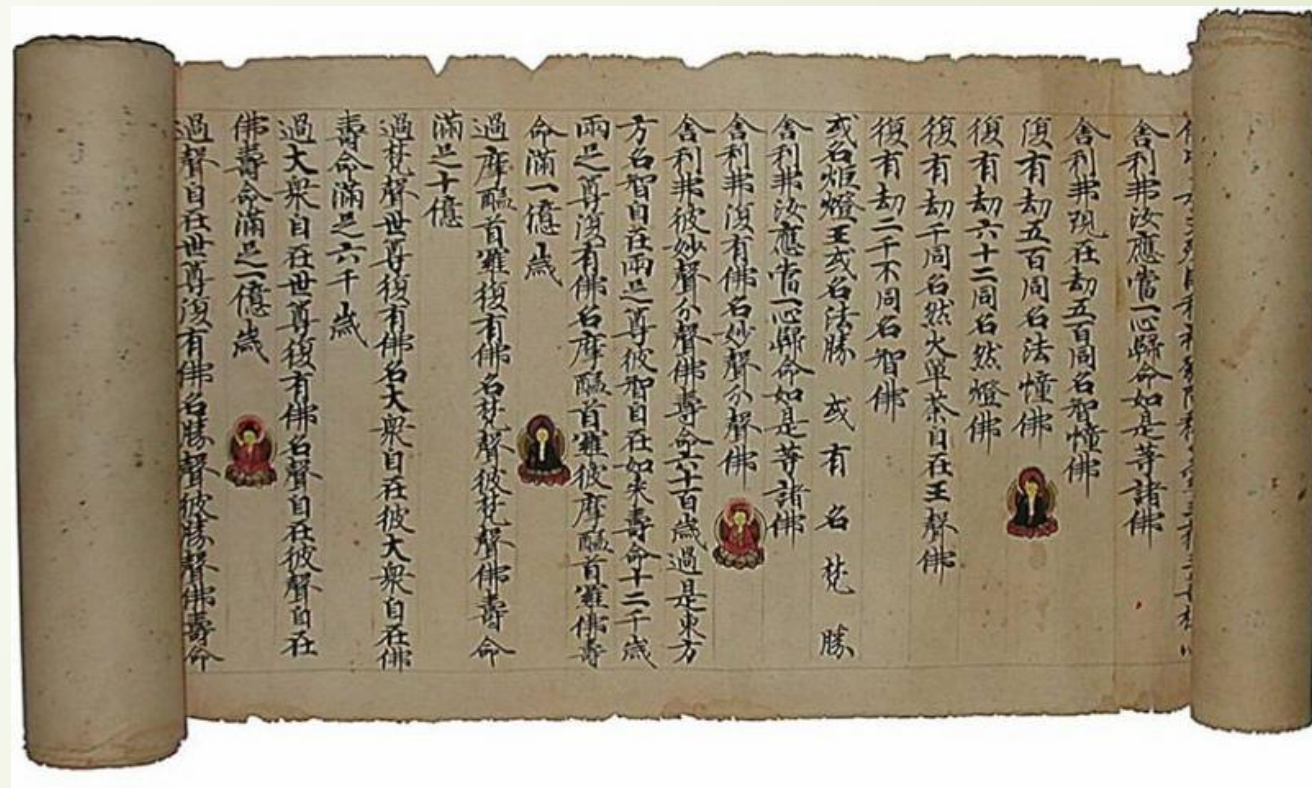 舍利弗汝應當一心歸命如是等諸佛
舍利弗現在劫五百同名智幢佛
復有劫五百同名法幢佛
復有劫六十二同名然燈佛
復有劫千同名然火單荼自在王聲佛
復有劫二千不同名智佛
或名炬燈王或名法勝或有名梵勝
舍利弗汝應當一心歸命如是等諸佛
舍利弗復有佛名妙聲分聲佛
舍利弗彼妙聲分聲佛壽命六十百歲過是東方
方名智自在兩足尊彼智自在如來壽命十二千歲
兩足尊復有佛名摩醯首羅彼摩醯首羅佛壽
命滿一億歲
過摩醯首羅復有佛名梵聲彼梵聲佛壽命
滿足十億
過梵聲世尊復有佛名大衆自在彼大衆自在佛
壽命滿足六千歲
過大衆自在世尊復有佛名聲自在彼聲自在
佛壽命滿足一億歲
過聲自在世尊復有佛名勝聲彼勝聲佛壽命